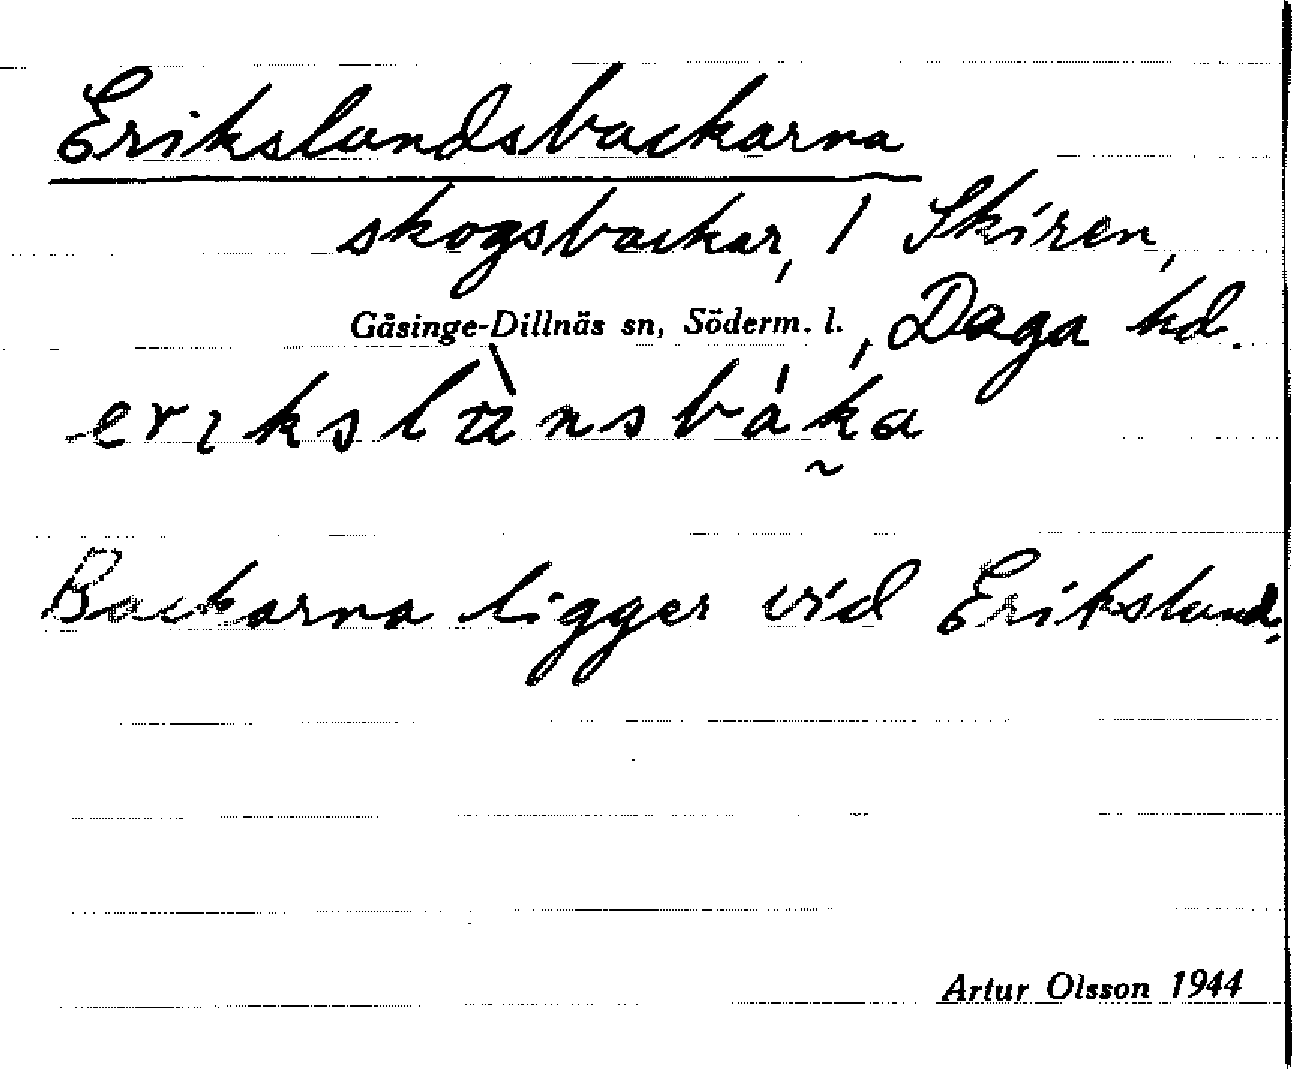 Erikslandsbackarna
skogsbackar, / Skiren,
Gåsinge-Dillnäs sn, Söderm. l., Daga hd.
Backarna ligger vid Eriksland.
Artur Olsson 1944